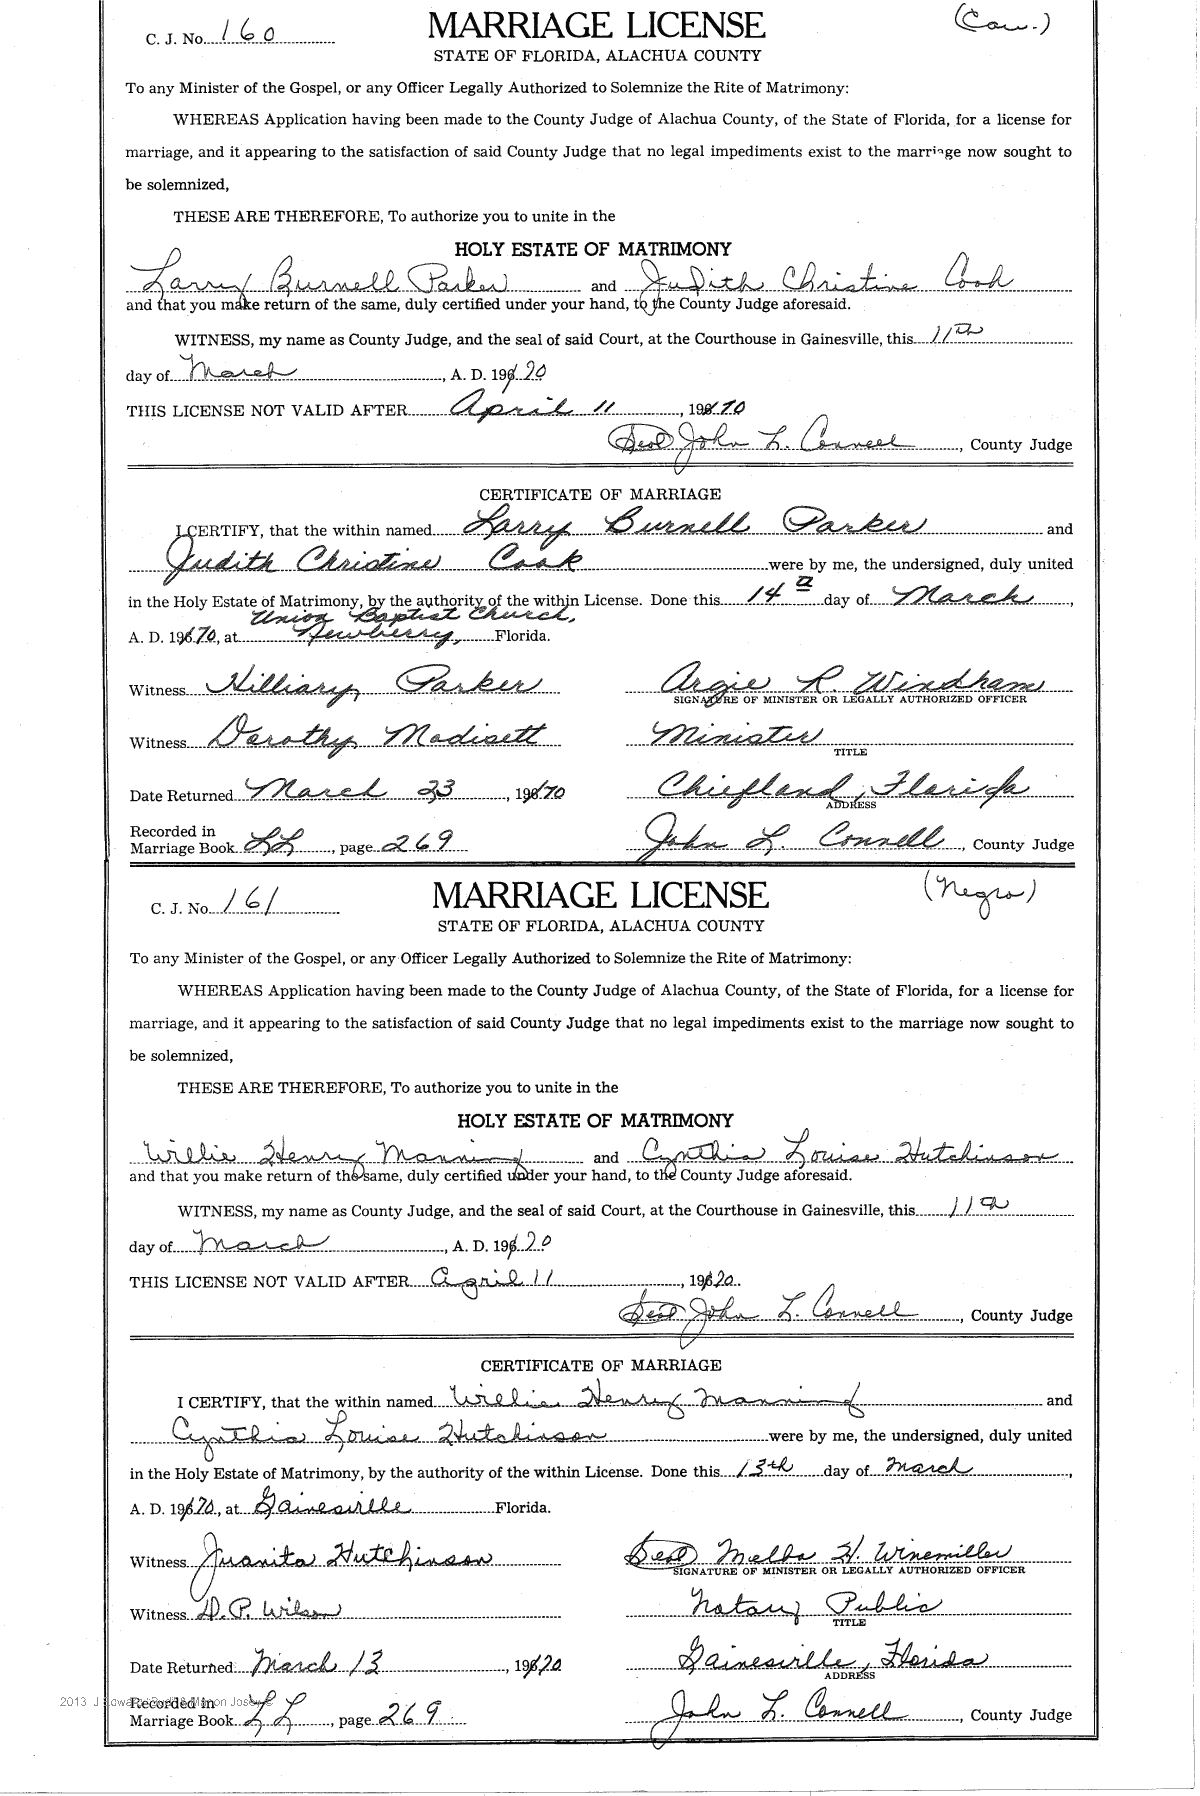 C. J. No. 160
MARRIAGE LICENSE
(Cau.)
STATE OF FLORIDA, ALACHUA COUNTY
To any Minister of the Gospel, or any Officer Legally Authorized to Solemnize the Rite of Matrimony:
WHEREAS Application having been made to the County Judge of Alachua County, of the State of Florida, for a license for
marriage, and it appearing to the satisfaction of said County Judge that no legal impediments exist to the marriage now sought to
be solemnized,
THESE ARE THEREFORE, To authorize you to unite in the
HOLY ESTATE OF MATRIMONY
Larry Burnell Parker and Judith Christine Cook
and that you make return of the same, duly certified under your hand, to the County Judge aforesaid.
WITNESS, my name as County Judge, and the seal of said Court, at the Courthouse in Gainesville, this 11th
day of March, A. D. 1970
THIS LICENSE NOT VALID AFTER April 11, 1970
(Seal) John L. Connell, County Judge
CERTIFICATE OF MARRIAGE
I CERTIFY, that the within named Larry Burnell Parker and
Judith Christine Cook were by me, the undersigned, duly united
in the Holy Estate of Matrimony, by the authority of the within License. Done this 14th day of March,
Union Baptist Church,
A. D. 1970, at Newberry, Florida.
Witness Hilliary Parker
Argie R. Windham
SIGNATURE OF MINISTER OR LEGALLY AUTHORIZED OFFICER
Witness Dorothy Madisett
Minister
TITLE
Date Returned March 23, 1970
Chiefland, Florida
ADDRESS
Recorded in
Marriage Book LL, page 269
John L. Connell, County Judge
C. J. No. 161
MARRIAGE LICENSE
(Negro)
STATE OF FLORIDA, ALACHUA COUNTY
To any Minister of the Gospel, or any Officer Legally Authorized to Solemnize the Rite of Matrimony:
WHEREAS Application having been made to the County Judge of Alachua County, of the State of Florida, for a license for
marriage, and it appearing to the satisfaction of said County Judge that no legal impediments exist to the marriage now sought to
be solemnized,
THESE ARE THEREFORE, To authorize you to unite in the
HOLY ESTATE OF MATRIMONY
Willie Henry Manning and Cynthia Louise Hutchinson
and that you make return of the same, duly certified under your hand, to the County Judge aforesaid.
WITNESS, my name as County Judge, and the seal of said Court, at the Courthouse in Gainesville, this 11th
day of March, A. D. 1970
THIS LICENSE NOT VALID AFTER April 11, 1970.
(Seal) John L. Connell, County Judge
CERTIFICATE OF MARRIAGE
I CERTIFY, that the within named Willie Henry Manning and
Cynthia Louise Hutchinson were by me, the undersigned, duly united
in the Holy Estate of Matrimony, by the authority of the within License. Done this 13th day of March,
A. D. 1970, at Gainesville Florida.
Witness Juanita Hutchinson
(Seal) Melba H. Winemiller
SIGNATURE OF MINISTER OR LEGALLY AUTHORIZED OFFICER
Witness D. P. Wilson
Notary Public
TITLE
Date Returned March 13, 1970
Gainesville, Florida
ADDRESS
2013 J
Recorded in
Marriage Book LL, page 269
John L. Connell, County Judge